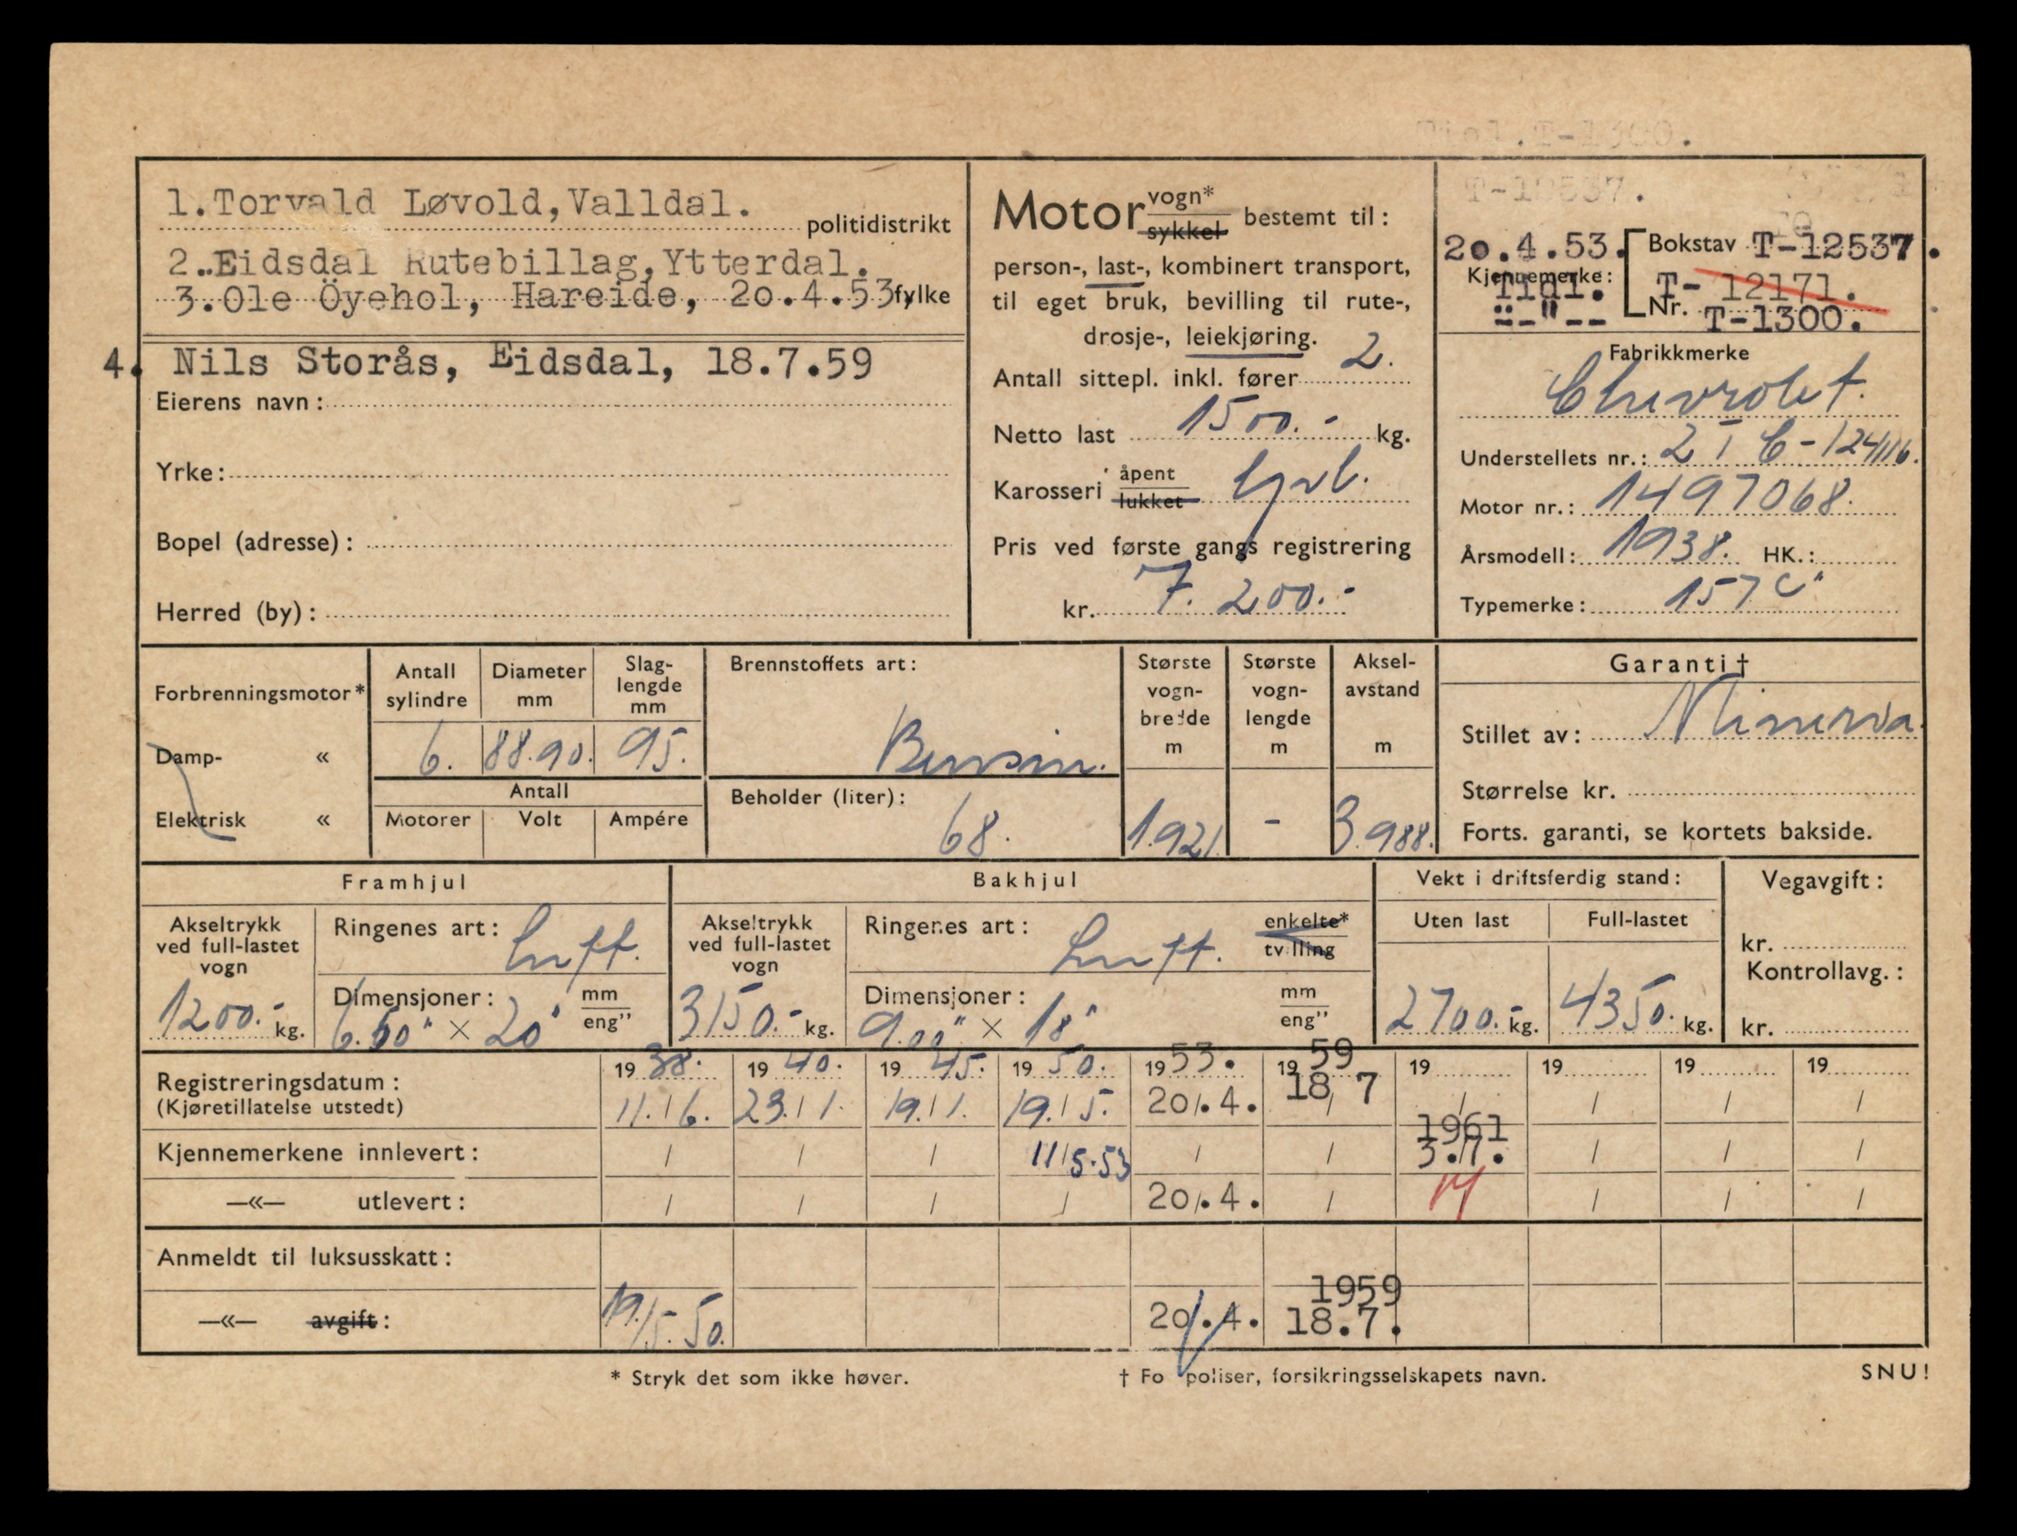 1.Torvald Løvold,Valldal. politidistrikt
2. Eidsdal Rutebillag,Ytterdal.
3.Ole Öyehol, Hareide, 20.4.53 fylke
4. Nils Storås, Eidsdal, 18.7.59
Eierens navn:
Yrke:
Bopel (adresse):
Herred (by):
Motor vogn* sykkel bestemt til:
person-, last-, kombinert transport,
til eget bruk, bevilling til rute-,
drosje-, leiekjøring.
Antall sittepl. inkl. fører 2.
Netto last 1500.- kg.
Karosseri åpent lukket
Pris ved første gangs registrering
kr. 7.200.-
T-12537.
20.4.53. Bokstav T-12537.
Kjennemerke: Tidl. T-12171.
-"- Nr. T-1300.
Fabrikkmerke
Chevrolet.
Understellets nr.: 2 T C-124116.
Motor nr.: 1497068.
Årsmodell: 1938. HK.:
Typemerke: 157 C
Forbrenningsmotor*
Damp- «
Elektrisk «
Antall sylindre 6.
Diameter mm 88.90.
Slaglengde mm 95.
Antall
Motorer Volt Ampére
Brennstoffets art:
Bensin.
Beholder (liter):
68.
Største vogn-bredde m 1.921
Største vogn-lengde m -
Aksel-avstand m 3.988.
Garanti†
Stillet av: Minerva.
Størrelse kr.
Forts. garanti, se kortets bakside.
Framhjul
Akseltrykk ved full-lastet vogn 1200.- kg.
Ringenes art: Luft.
Dimensjoner: mm eng"
6.50" × 20"
Bakhjul
Akseltrykk ved full-lastet vogn 3150.- kg.
Ringenes art: Luft. enkelte* tvilling
Dimensjoner: mm eng"
9.00" × 18"
Vekt i driftsferdig stand:
Uten last Full-lastet
2700.- kg. 4350.- kg.
Vegavgift:
kr.
Kontrollavg.:
kr.
Registreringsdatum: 1938. 1940. 1945. 1950. 1953. 1959 19 19 19 19
(Kjøretillatelse utstedt) 11./6. 23./1. 19./1. 19./5. 20/.4. 18/7 / / / /
1961
Kjennemerkene innlevert: / / / 11/5.53 / / 3./7. / / /
—«— utlevert: / / / / 20/.4. / / / /
Anmeldt til luksusskatt:
1959
—«— avgift: 19./5.50. 20/.4. 18.7.
* Stryk det som ikke høver.
† Fo poliser, forsikringsselskapets navn.
SNU!